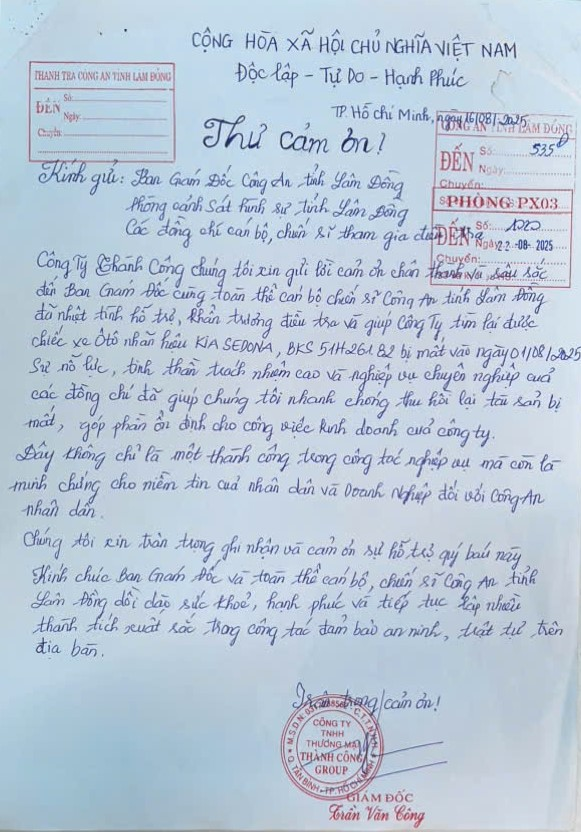 CỘNG HÒA XÃ HỘI CHỦ NGHĨA VIỆT NAM
Độc lập - Tự Do - Hạnh Phúc
THANH TRA CÔNG AN TỈNH LÂM ĐỒNG
ĐẾN
Số:
Ngày
Chuyển
TP. Hồ Chí Minh, ngày 16/08/2025
CÔNG AN TỈNH LÂM ĐỒNG
ĐẾN
Số: 535
Ngày:
Chuyển:
PHÒNG PX03
ĐẾN
Số:
Ngày 22-08-2025
Thư cảm ơn!
Kính gửi: Ban Giám Đốc Công An tỉnh Lâm Đồng
Phòng cảnh sát hình sự tỉnh Lâm Đồng
Các đồng chí cán bộ, chiến sĩ tham gia điều tra
Công Ty Thành Công chúng tôi xin gửi lời cảm ơn chân thành và sâu sắc
đến Ban Giám Đốc cùng toàn thể cán bộ chiến sĩ Công An tỉnh Lâm Đồng
đã nhiệt tình hỗ trợ, khẩn trương điều tra và giúp Công Ty tìm lại được
chiếc xe Ôtô nhãn hiệu KIA SEDONA, BKS 51H261.82 bị mất vào ngày 01/08/2025
Sự nỗ lực, tinh thần trách nhiệm cao và nghiệp vụ chuyên nghiệp của
các đồng chí đã giúp chúng tôi nhanh chóng thu hồi lại tài sản bị
mất, góp phần ổn định cho công việc kinh doanh của công ty.
Đây không chỉ là một thành công trong công tác nghiệp vụ mà còn là
minh chứng cho niềm tin của nhân dân và Doanh Nghiệp đối với Công An
nhân dân.
Chúng tôi xin trân trọng ghi nhận và cảm ơn sự hỗ trợ quý báu này
Kính chúc Ban Giám Đốc và toàn thể cán bộ, chiến sĩ Công An tỉnh
Lâm Đồng dồi dào sức khoẻ, hạnh phúc và tiếp tục lập nhiều
thành tích xuất sắc trong công tác đảm bảo an ninh, trật tự trên
địa bàn.
Trân trọng cảm ơn!
CÔNG TY
TNHH
THƯƠNG MẠI
THÀNH CÔNG
GROUP
Q. TÂN BÌNH - TP. HỒ CHÍ MINH
GIÁM ĐỐC
Trần Văn Công